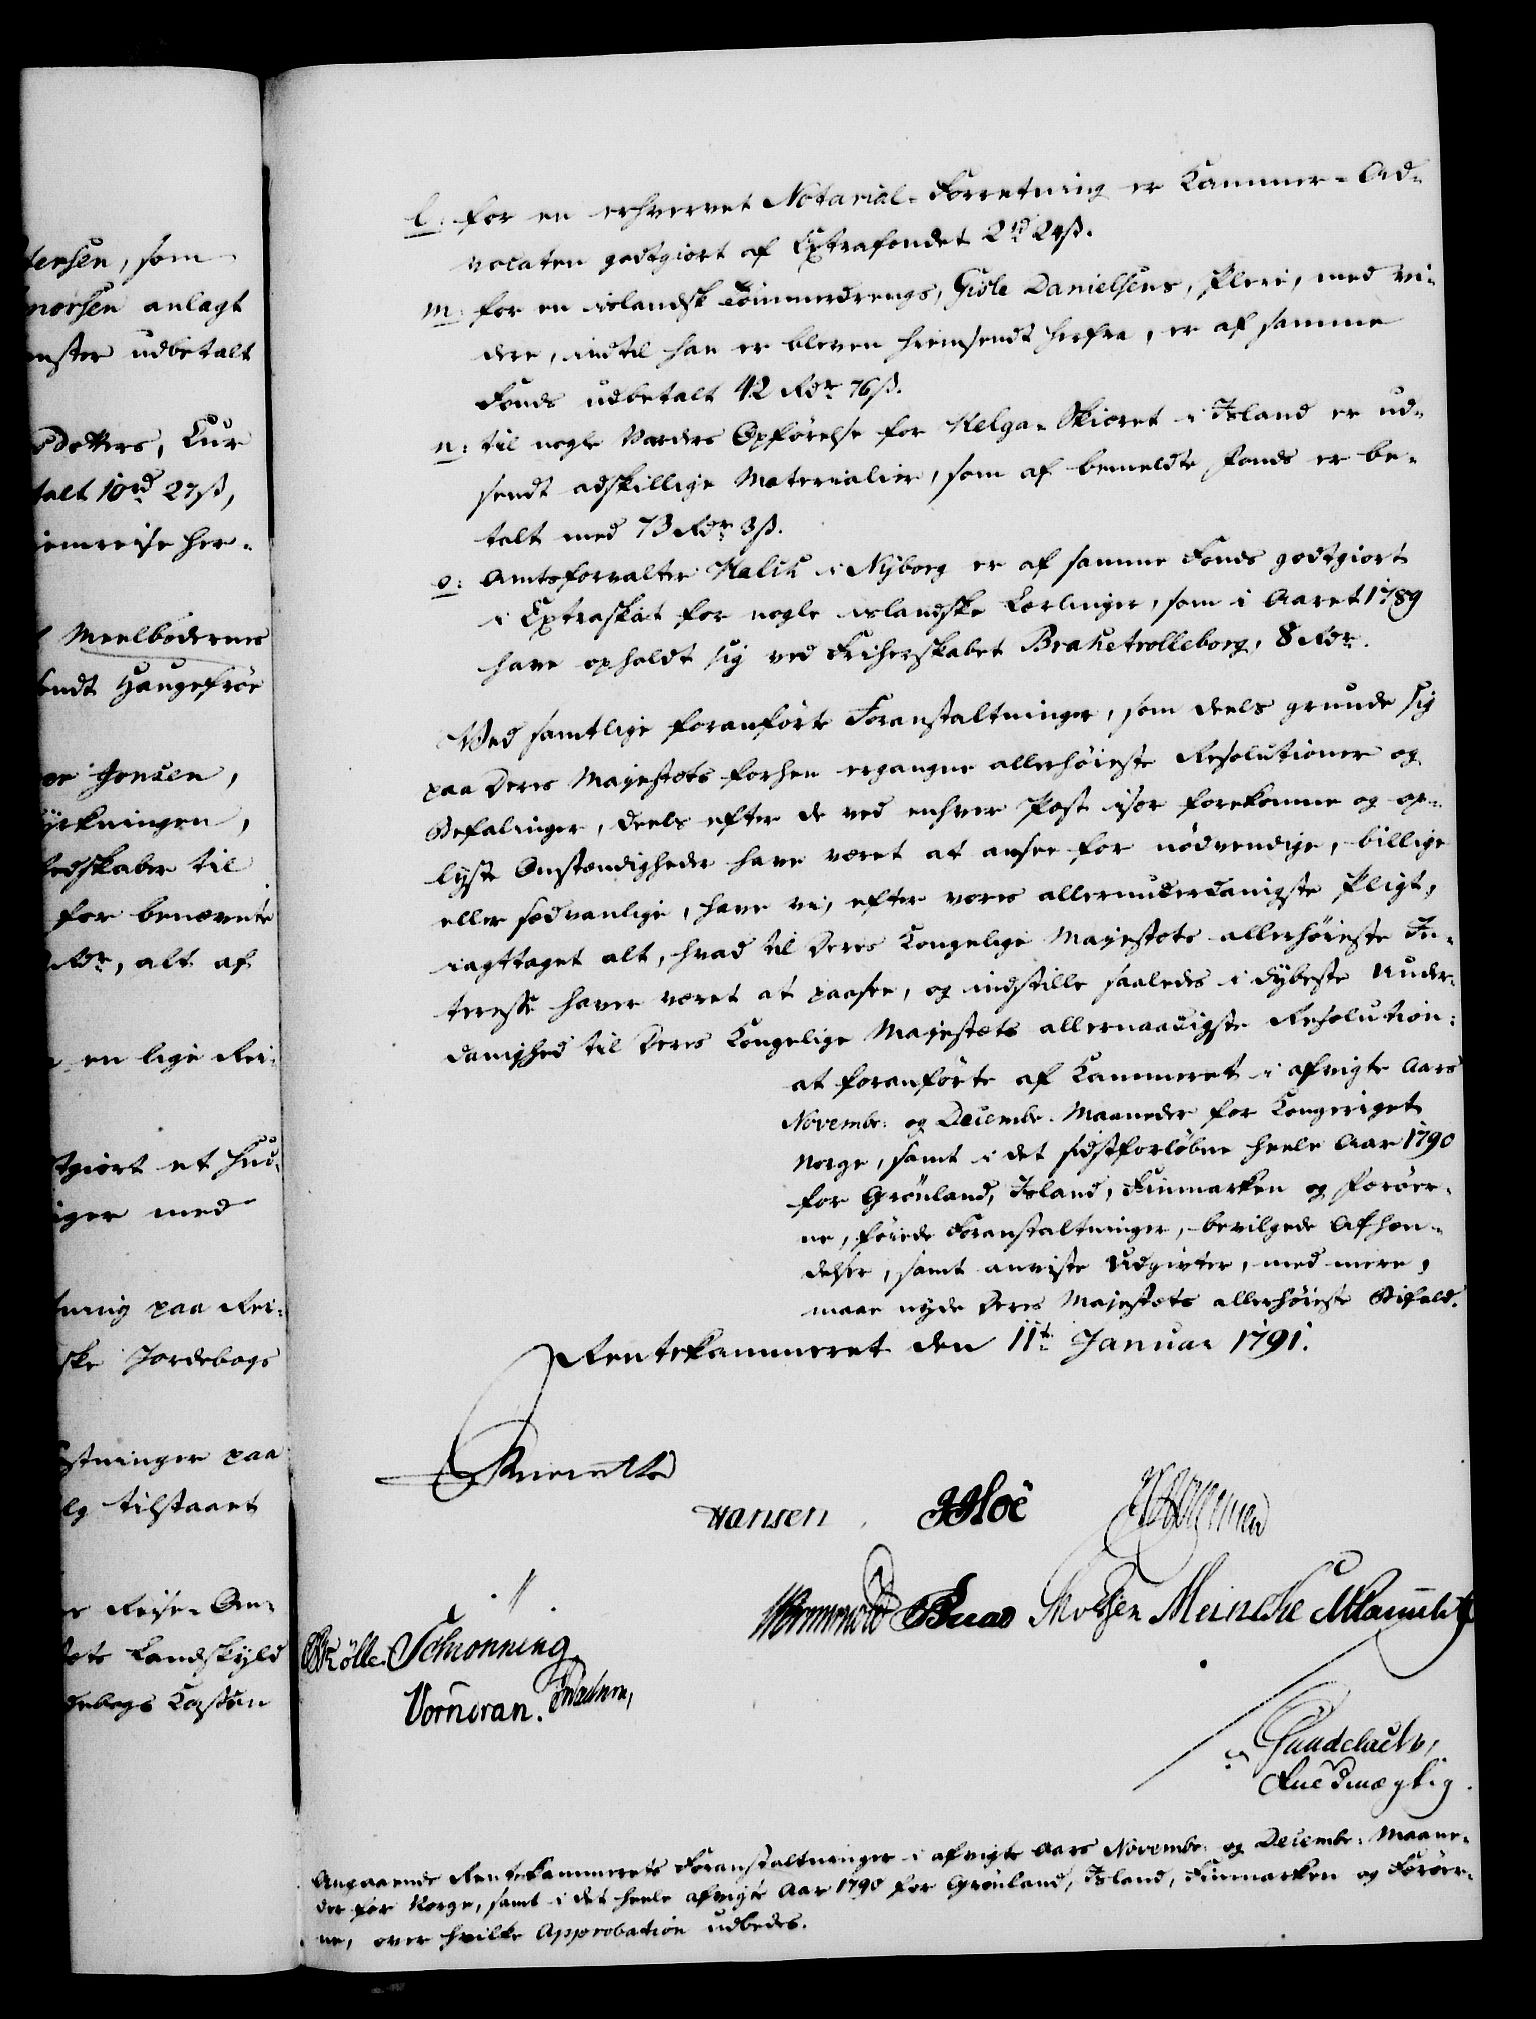 tersen, som
morsen anlagt
enster udbetalt
sdotters, Cur
talt 10rd 27ß,
iemreise her-
Meelboderne
sendt Haugefrøe
Jonsen,
yrkningen,
edskaber til
for benævnte
Rdr, alt af
en lige Rei-
tgiort et Hud-
iger med
tning paa Rei-
ske Jordebogs
stninger paa
lg tilstaaet
Reise-An-
ets Landskyld
debogs Cassen
l: for en erhvervet Notarial-Forretning er Kammer-Ad-
vocaten godtgiort af Extrafondet 2rd 24ß.
m: for en islandsk Tømmerdrengs, Gisle Danielsens, Pleie, med vi-
dere, indtil han er bleven hiemsendt herfra, er af samme
Fonds udbetalt 42 Rdr 76ß.
n: til nogle Varders Opførelse for Helga-Skiæret i Island er ud-
sendt adskillige Materialier, som af bemeldte Fonds er be-
talt med 73 Rdr 3ß.
o: Amtsforvalter Halck i Nyborg er af samme Fonds godtgiort
i Extraskat for nogle islandske Lærlinger, som i Aaret 1789
have opholdt sig ved Friherskabet Brahetrolleborg, 8 Rdr.
Ved samtlige foranførte Foranstaltninger, som deels grunde sig
paa Deres Majestæts forhen ergangne allerhøieste Resolutioner og
Befalinger, deels efter de ved enhver Post især forekomne og op-
lyste Omstændigheder have været at ansee for nødvendige, billige
eller sædvanlige, have vi, efter vores allerunderdanigste Pligt,
iagttaget alt, hvad til Deres Kongelige Majestæts allerhøieste In-
teresse haver været at paasee, og indstille saaledes i dybeste Under-
danighed til Deres Kongelige Majestæts allernaadigste Resolution:
at foranførte af Kammeret i afvigte Aars
Novembr: og Decembr: Maaneder for Kongeriget
Norge, samt i det sidstforløbne heele Aar 1790
for Grønland, Island, Finmarken og Færøer-
ne, føiede Foranstaltninger, bevilgede Afhæn-
delser, samt anviste Udgivter, med mere,
maae nyde Deres Majestæts allerhøieste Bifald.
Rentekammeret den 11te Januar 1791.
Hansen
Hoë
Wormskiold
Meincke
Schionning
Vorndran.
Fuldmægtig.
Angaaende Rentekammerets Foranstaltninger i afvigte Aars Novembr: og Decembr: Maane-
der for Norge, samt i det heele afvigte Aar 1790 for Grønland, Island, Finmarken og Færøer-
ne, over hvilke Approbation udbedes.